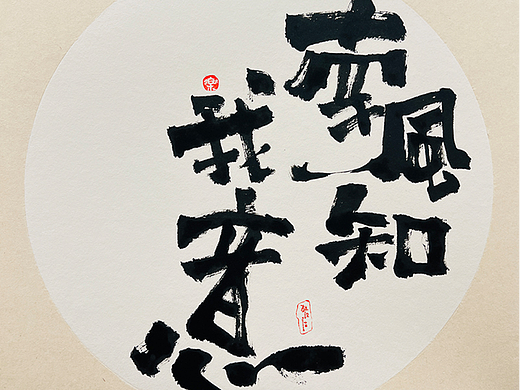 南風知
我意